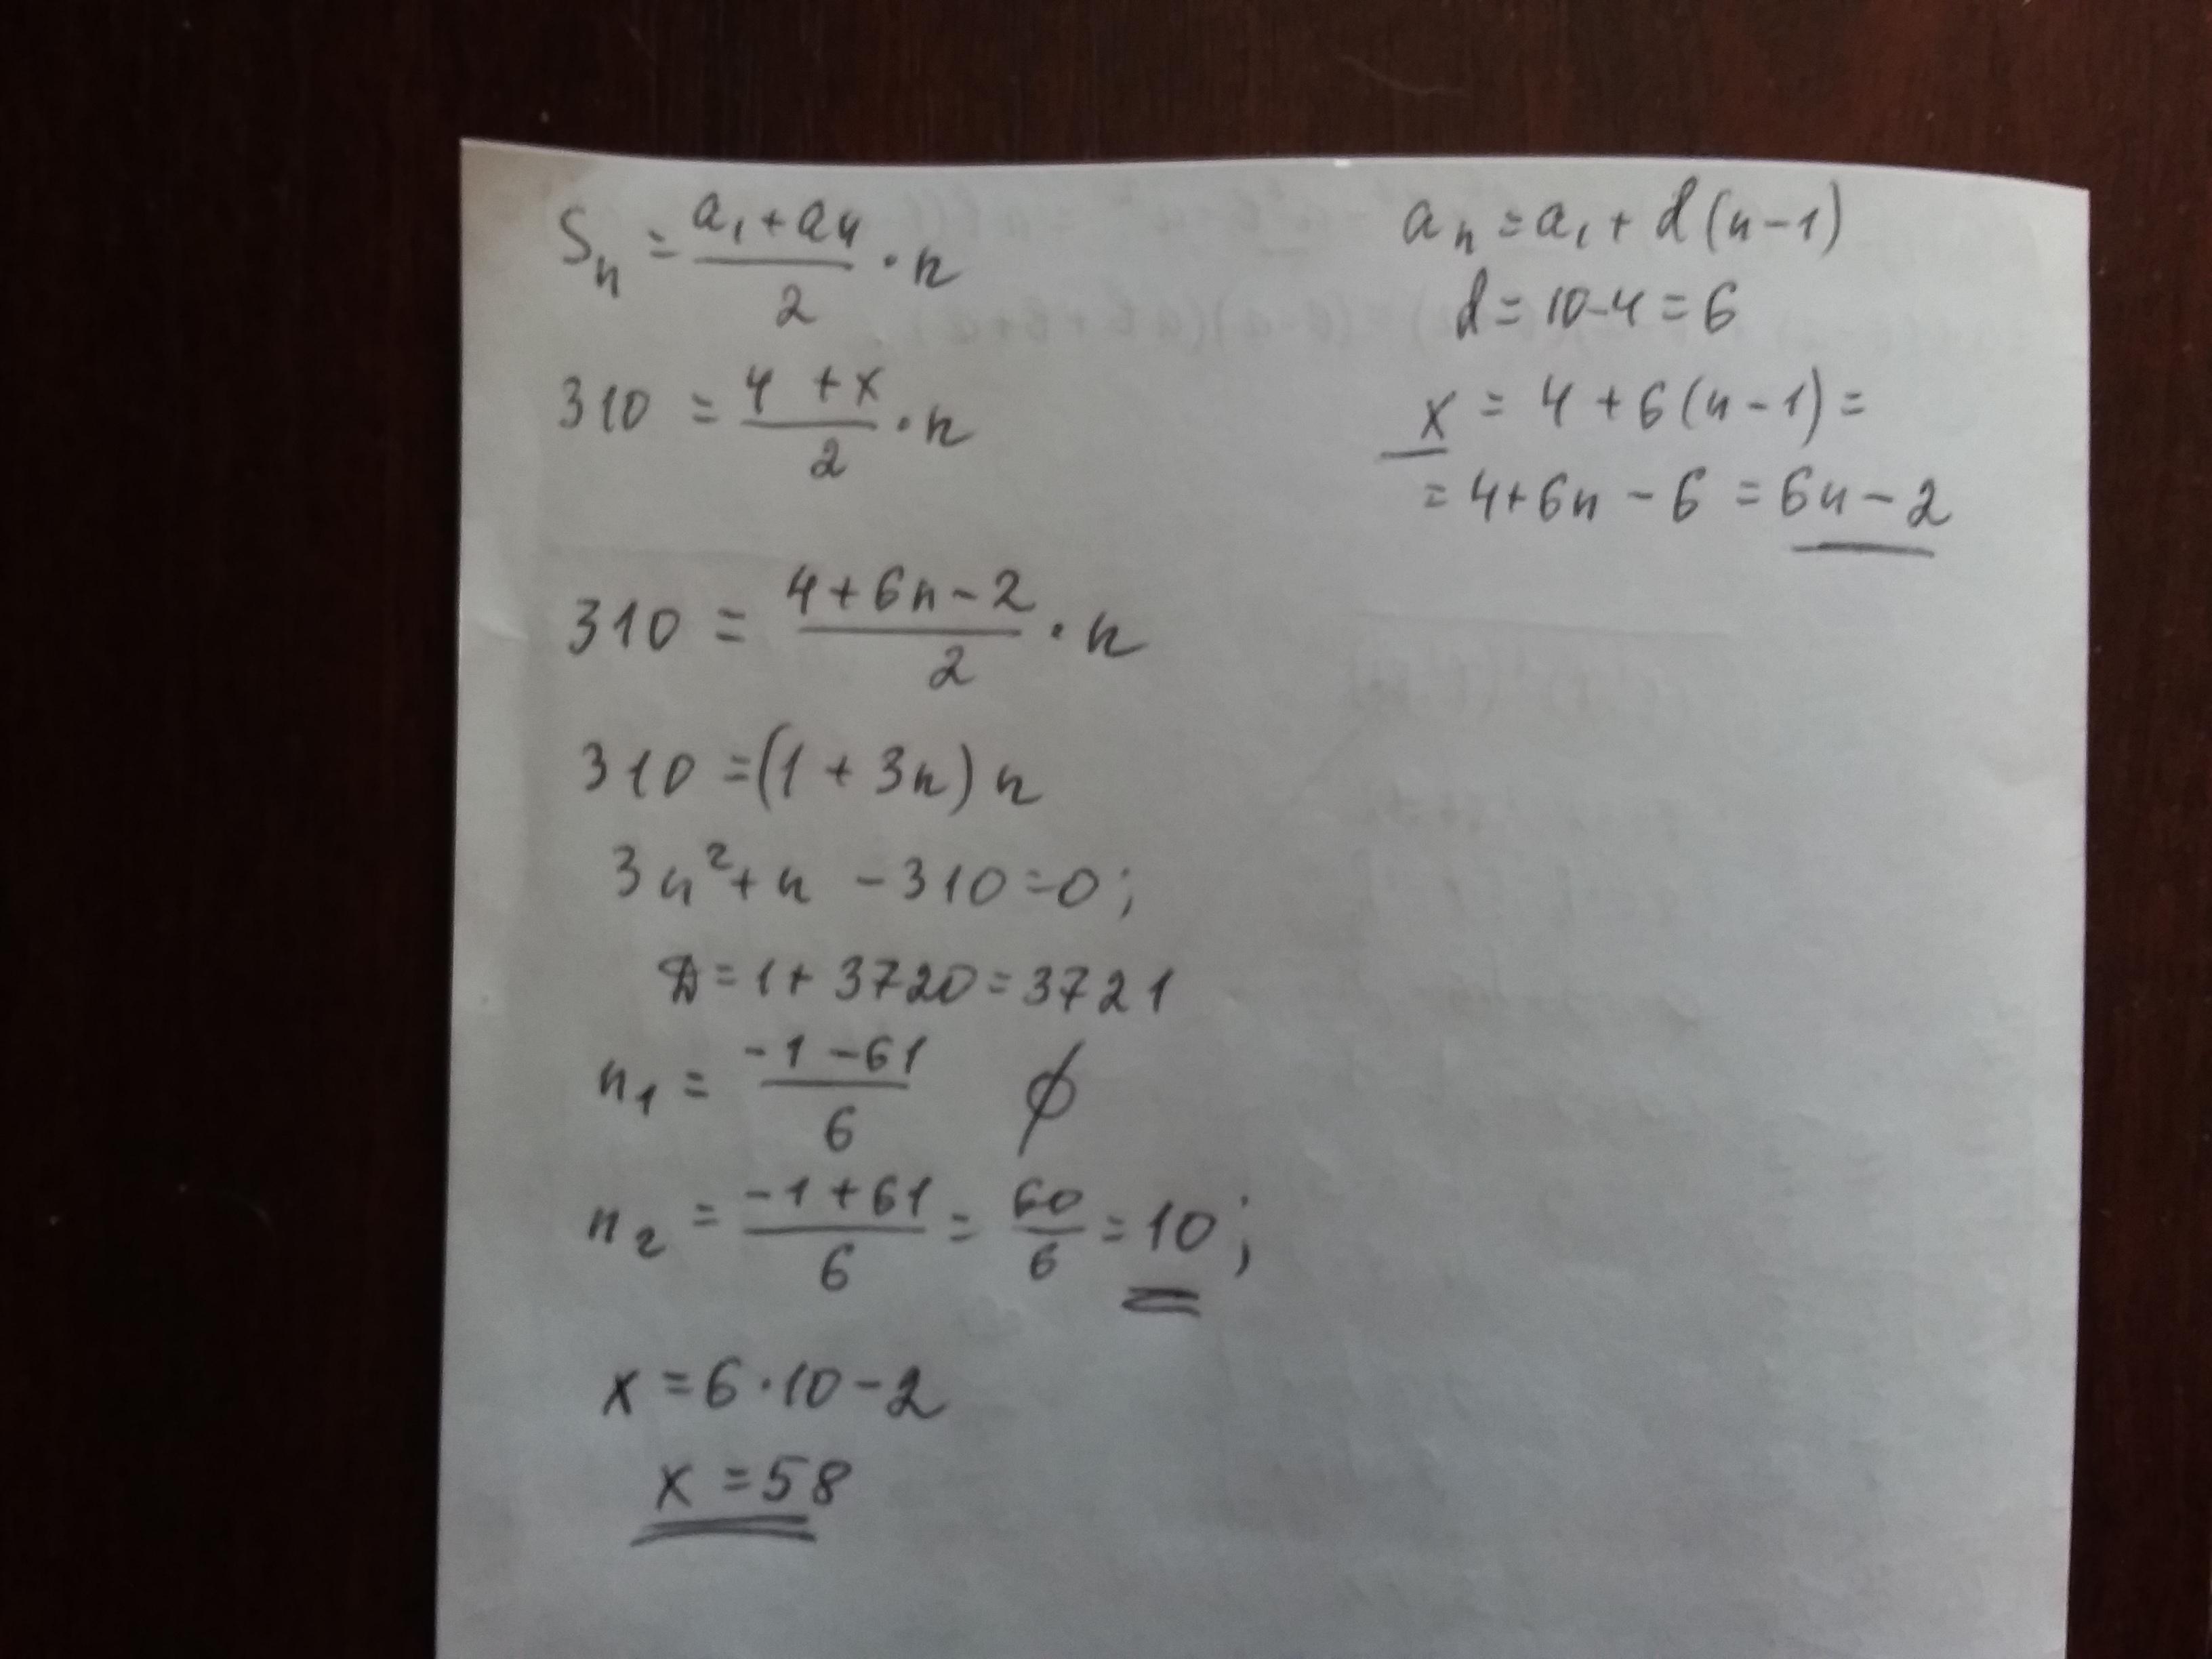 Sn = (a₁ + an)/2 · n
310 = (4 + x)/2 · n
310 = (4 + 6n − 2)/2 · n
310 = (1 + 3n) n
3n² + n − 310 = 0;
D = 1 + 3720 = 3721
n₁ = (−1 − 61)/6 ∅
n₂ = (−1 + 61)/6 = 60/6 = 10;
x = 6 · 10 − 2
x = 58
an = a₁ + d(n − 1)
d = 10 − 4 = 6
x = 4 + 6(n − 1) =
= 4 + 6n − 6 = 6n − 2